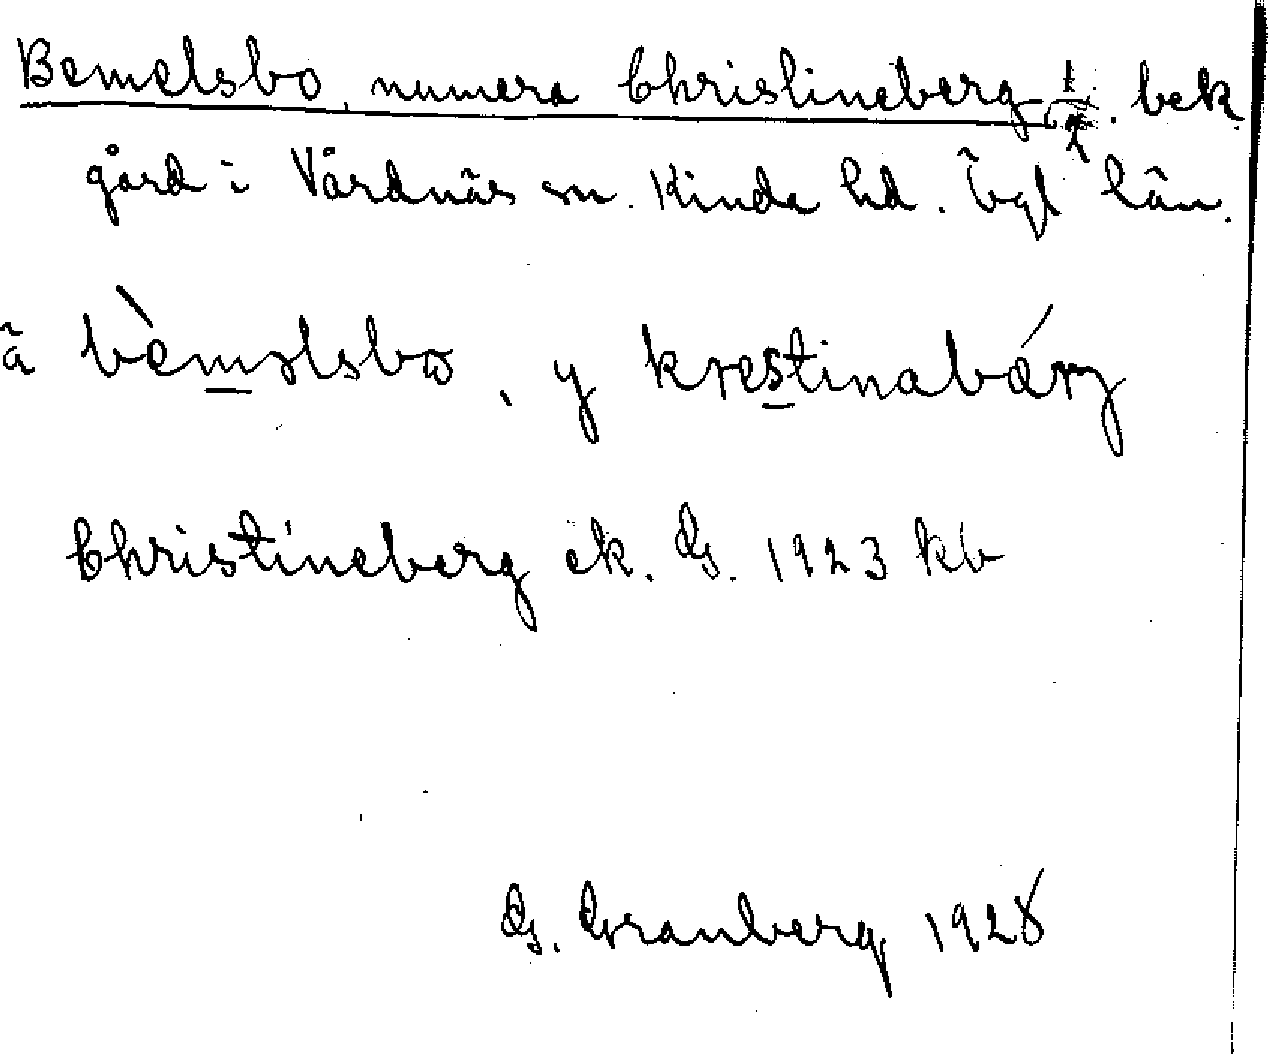 Bemelsbo, numera Christineberg . bek.
gård i Vårdnäs sn. Kinda hd. Ögl län.
ä bèməlsbo, y krestinabárj
Christineberg ek. G. 1923 kb
G. Granberg 1928